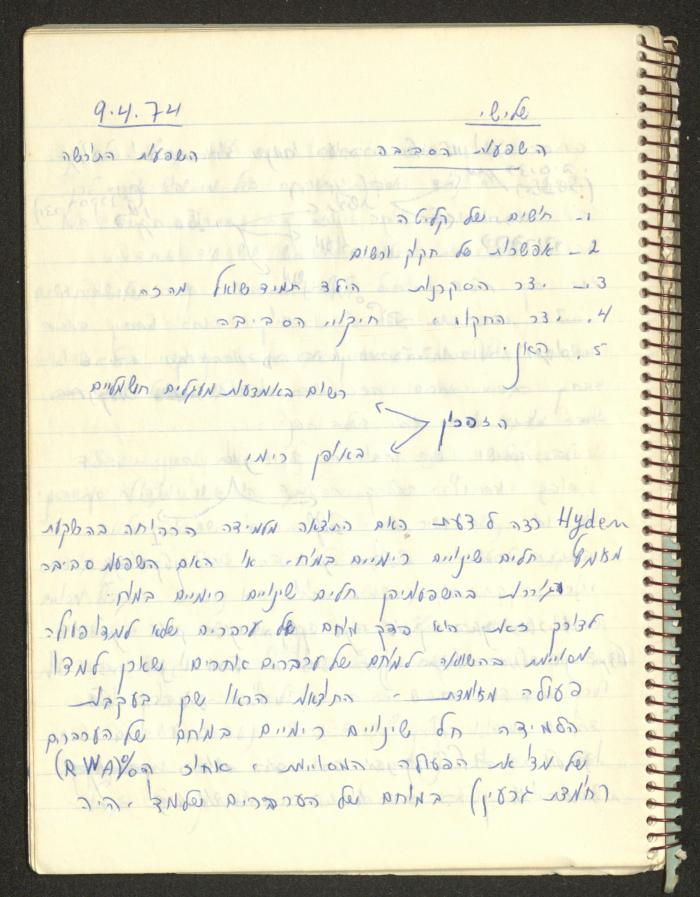 שלישי 9.4.74
השפעת הסביבה השפעת התורשה
1- חישים של קליטה
2- אפשרות של חקוק ורשום
3- יצר הסקרנות הילד תמיד שואל
4. יצר החקוי חיקוי הסביבה
5.
רשום באמצעות מעגלים חשמליים
הזכרון
באופן כימי
Hyden רצה לדעת האם התוצאה מלמידה הרהוחה בהשקעת
מאמץ חלים שינויים כימיים במוח. או האם השפעת סביבה
בהשפעותיהן חלים שינויים כימיים במוח.
לצורך זאת הוא בדק מוחם של עכברים שלא למדו פעולה
מסויימת בהשוואה למוחם של עכברים אחרים שאכן למדו
פעולה מסוימת - התוצאות הראו שכן בעקבות
הלמידה חל שינויים כימיים במוחם של העכברים
שלמדו את הפעולה המסויימת. אחוז (RNA)
(חומצת גרעין) במוחם של העכברים שלמדו היה